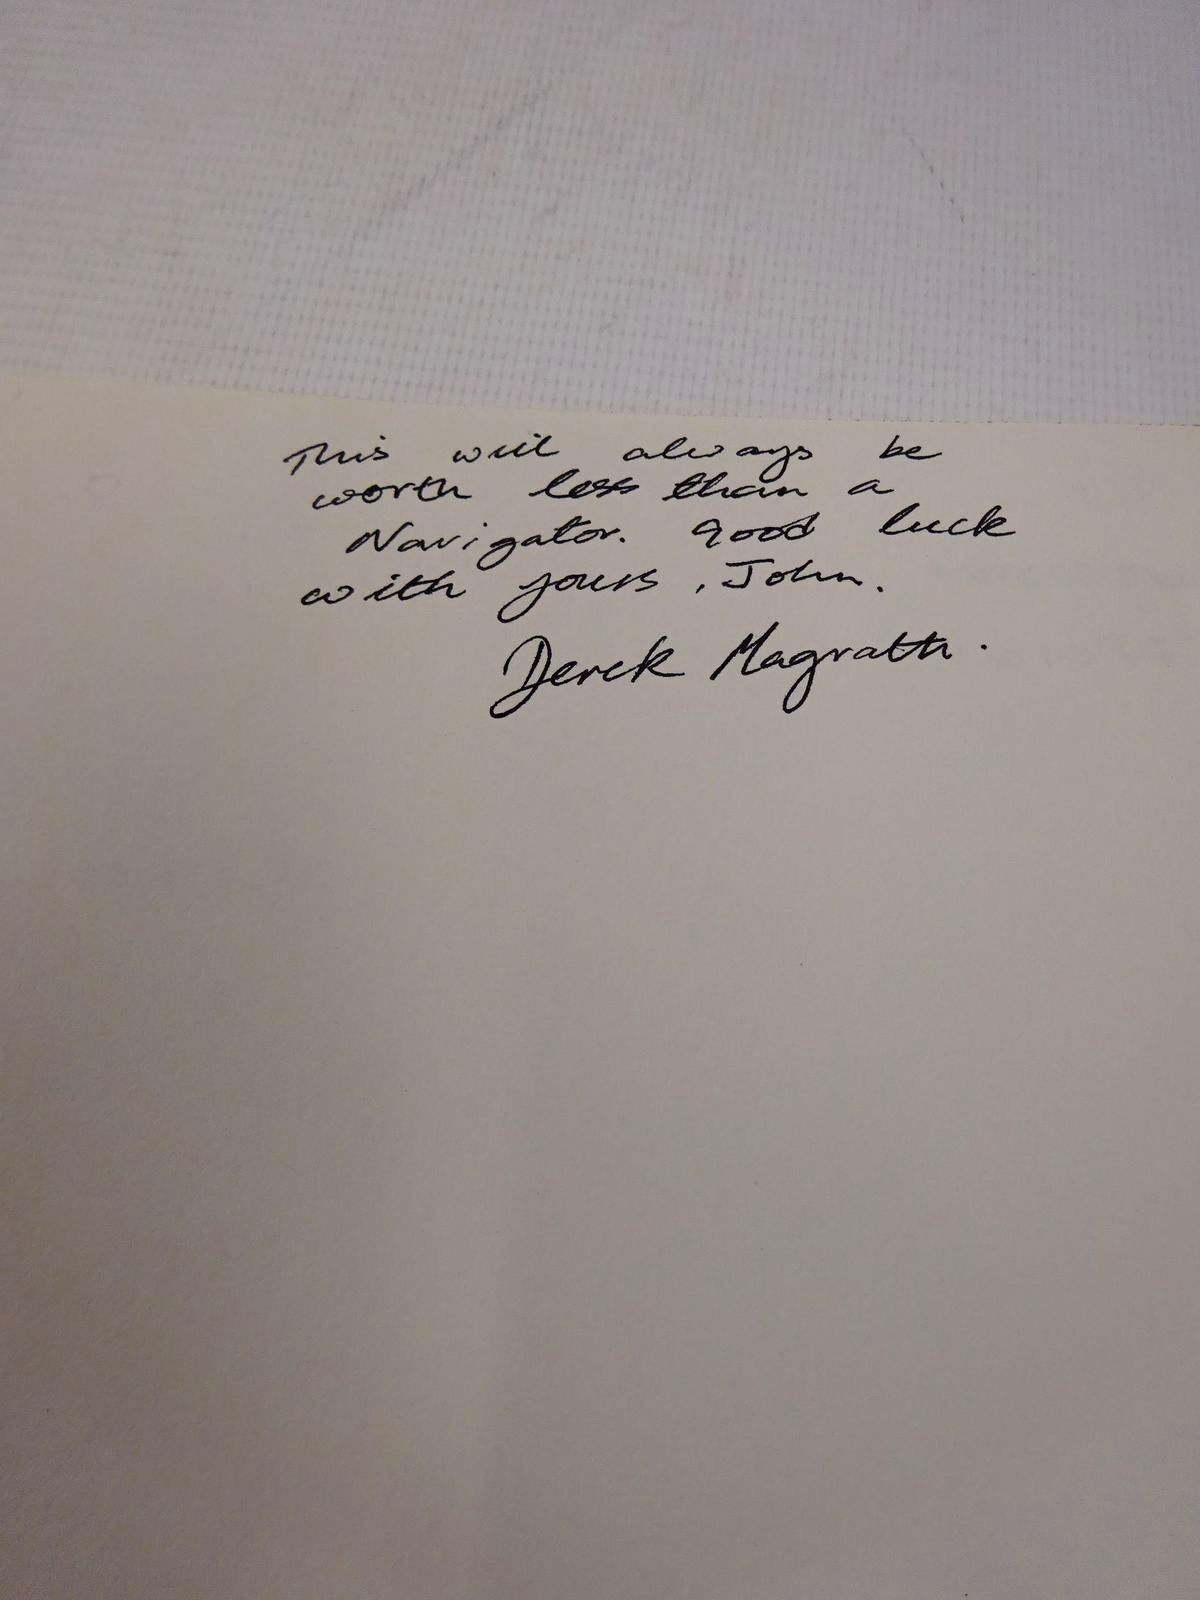 This will always be
worth less than a
Navigator. Good luck
with yours, John.
Derek Magrath.